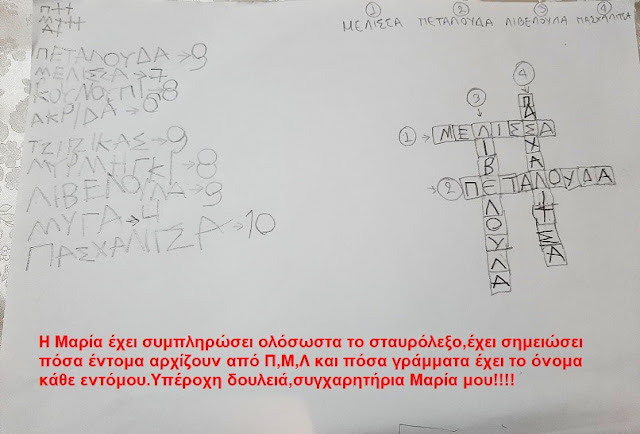 Π++
Μ+++
① ② ③ ④
ΜΕΛΙΣΣΑ ΠΕΤΑΛΟΥΔΑ ΛΙΒΕΛΟΥΛΑ ΠΑΣΧΑΛΙΤΣΑ
ΠΕΤΑΛΟΥΔΑ→9
ΜΕΛΙΣΣΑ→7
ΚΟΥΝΟΥΠΙ→8
ΑΚΡΙΔΑ→6
ΤΖΙΖΙΚΑΣ→9
ΜΥΡΜΗΓΚΙ→8
ΛΙΒΕΛΟΥΛΑ→9
ΜΥΓΑ→4
ΠΑΣΧΑΛΙΤΣΑ→10
① ΜΕΛΙΣΣΑ
② ΠΕΤΑΛΟΥΔΑ
③ ΛΙΒΕΛΟΥΛΑ
④ ΠΑΣΧΑΛΙΤΣΑ
Η Μαρία έχει συμπληρώσει ολόσωστα το σταυρόλεξο,έχει σημειώσει
πόσα έντομα αρχίζουν από Π,Μ,Λ και πόσα γράμματα έχει το όνομα
κάθε εντόμου.Υπέροχη δουλειά,συγχαρητήρια Μαρία μου!!!!